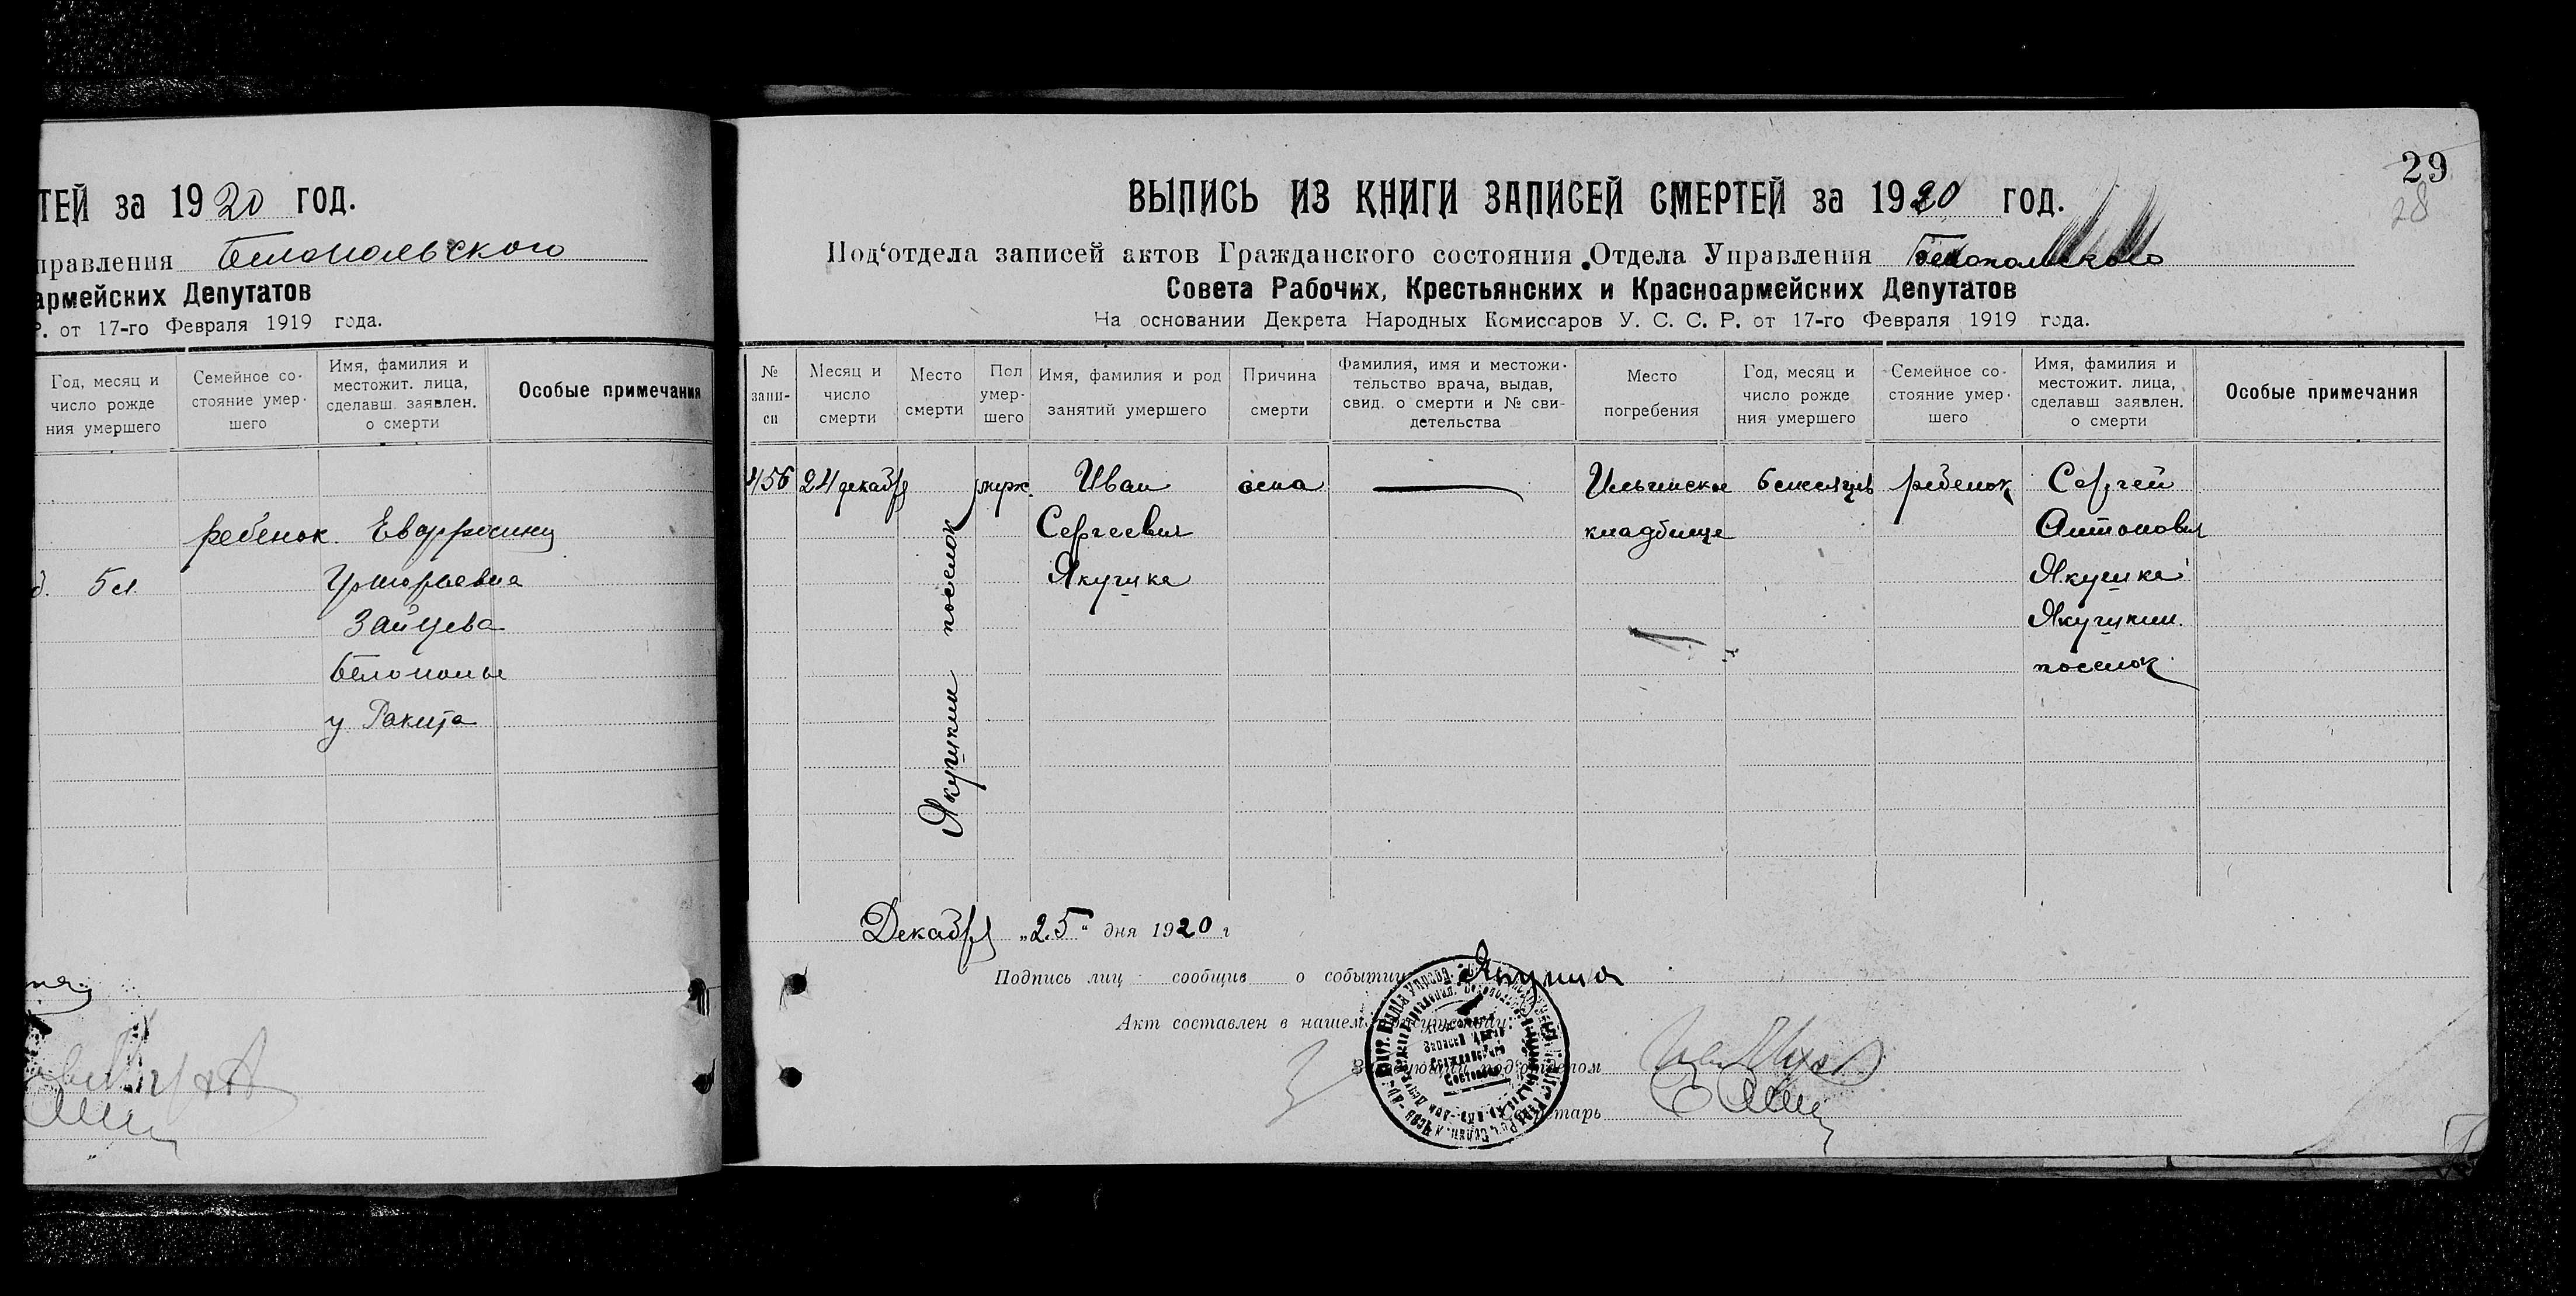 ТЕЙ за 1920 год.
правления Белопольского
армейских Депутатов
Р. от 17-го Февраля 1919 года.
Год, месяц и число рожде ния умершего
Семейное со- стояние умер- шего
Имя, фамилия и местожит. лица, сделавш. заявлен. о смерти
Особые примечания
ребенок.
д. 5 м
Зайцева
Белополье
у Ракита
29
28
ВЫПИСЬ ИЗ КНИГИ ЗАПИСЕЙ СМЕРТЕЙ за 1920 год.
Под'отдела записей актов Гражданского состояния Отдела Управления Белопольского
Совета Рабочих, Крестьянских и Красноармейских Депутатов
На основании Декрета Народных Комиссаров У. С. С. Р. от 17-го Февраля 1919 года.
№ запи- си
Месяц и число смерти
Место смерти
Пол умер- шего
Имя, фамилия и род занятий умершего
Причина смерти
Фамилия, имя и местожи- тельство врача, выдав, свид. о смерти и № сви- детельства
Место погребения
Год, месяц и число рожде ния умершего
Семейное со- стояние умер- шего
Имя, фамилия и местожит. лица, сделавш заявлен. о смерти
Особые примечания
456
24 декабря
Якушкин поселок
муж.
Иван
Сергеевич
Якушка
оспа
Ильинское
кладбище
6 месяцев
ребенок
Сергей
Антонович
Якушка
Якушкин.
поселок
Декабря „25“ дня 1920 г
Подпись лиц сообщив о событии
Акт составлен в нашем присутствии:
Записей Актов
Гражданского
Состояния